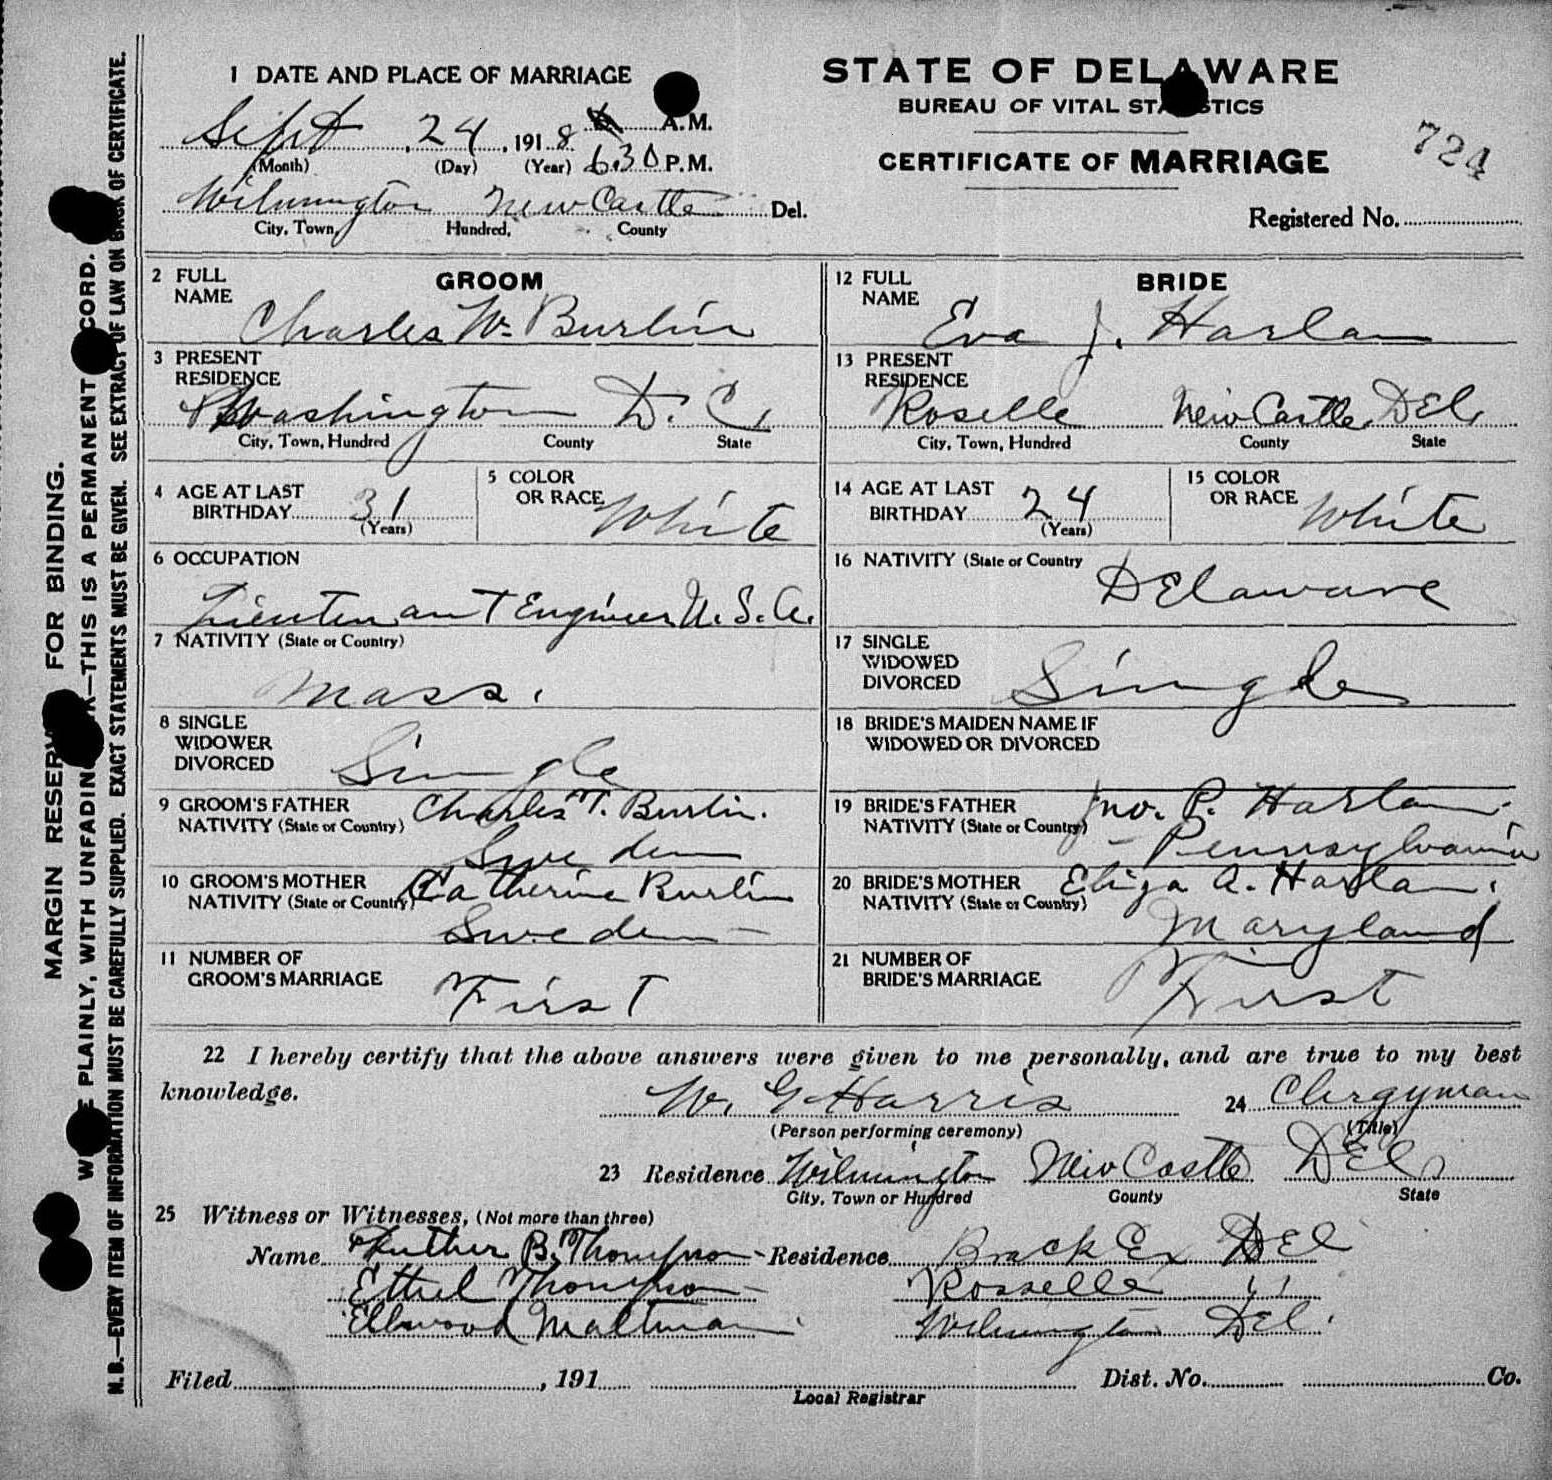 1 DATE AND PLACE OF MARRIAGE
Sept. 24, 1918 A.M.
(Month) (Day) (Year) 6.30 P.M.
Wilmington New Castle Del.
City, Town, Hundred, County
STATE OF DELAWARE
BUREAU OF VITAL STATISTICS
CERTIFICATE OF MARRIAGE
724
Registered No.
GROOM
2 FULL NAME Charles W. Burlin
3 PRESENT RESIDENCE
Washington D. C.
City, Town, Hundred County State
4 AGE AT LAST BIRTHDAY 31 (Years)
5 COLOR OR RACE White
6 OCCUPATION
Lieutenant Engineer U. S. A.
7 NATIVITY (State or Country)
Mass.
8 SINGLE WIDOWER DIVORCED Single
9 GROOM'S FATHER Charles T. Burlin.
NATIVITY (State or Country) Sweden
10 GROOM'S MOTHER Catherine Burlin
NATIVITY (State or Country) Sweden
11 NUMBER OF GROOM'S MARRIAGE First
BRIDE
12 FULL NAME Eva J. Harlan
13 PRESENT RESIDENCE
Roselle New Castle Del.
City, Town, Hundred County State
14 AGE AT LAST BIRTHDAY 24 (Years)
15 COLOR OR RACE White
16 NATIVITY (State or Country
Delaware
17 SINGLE WIDOWED DIVORCED Single
18 BRIDE'S MAIDEN NAME IF WIDOWED OR DIVORCED
19 BRIDE'S FATHER Jno. P. Harlan.
NATIVITY (State or Country) Pennsylvania
20 BRIDE'S MOTHER Eliza A. Harlan.
NATIVITY (State or Country) Maryland
21 NUMBER OF BRIDE'S MARRIAGE First
22 I hereby certify that the above answers were given to me personally, and are true to my best
knowledge.
W. G. Harris 24 Clergyman
(Person performing ceremony) (Title)
23 Residence Wilmington New Castle Del
City, Town or Hundred County State
25 Witness or Witnesses, (Not more than three)
Name Luther B. Thompson - Residence Brack Ex Del
Ethel Thompson - Rosselle " "
Ellwood Maltman. Wilmington Del.
Filed , 191 Dist. No. Co.
Local Registrar
MARGIN RESERVED FOR BINDING.
WRITE PLAINLY, WITH UNFADING INK—THIS IS A PERMANENT RECORD.
N. B.—EVERY ITEM OF INFORMATION MUST BE CAREFULLY SUPPLIED. EXACT STATEMENTS MUST BE GIVEN. SEE EXTRACT OF LAW ON BACK OF CERTIFICATE.